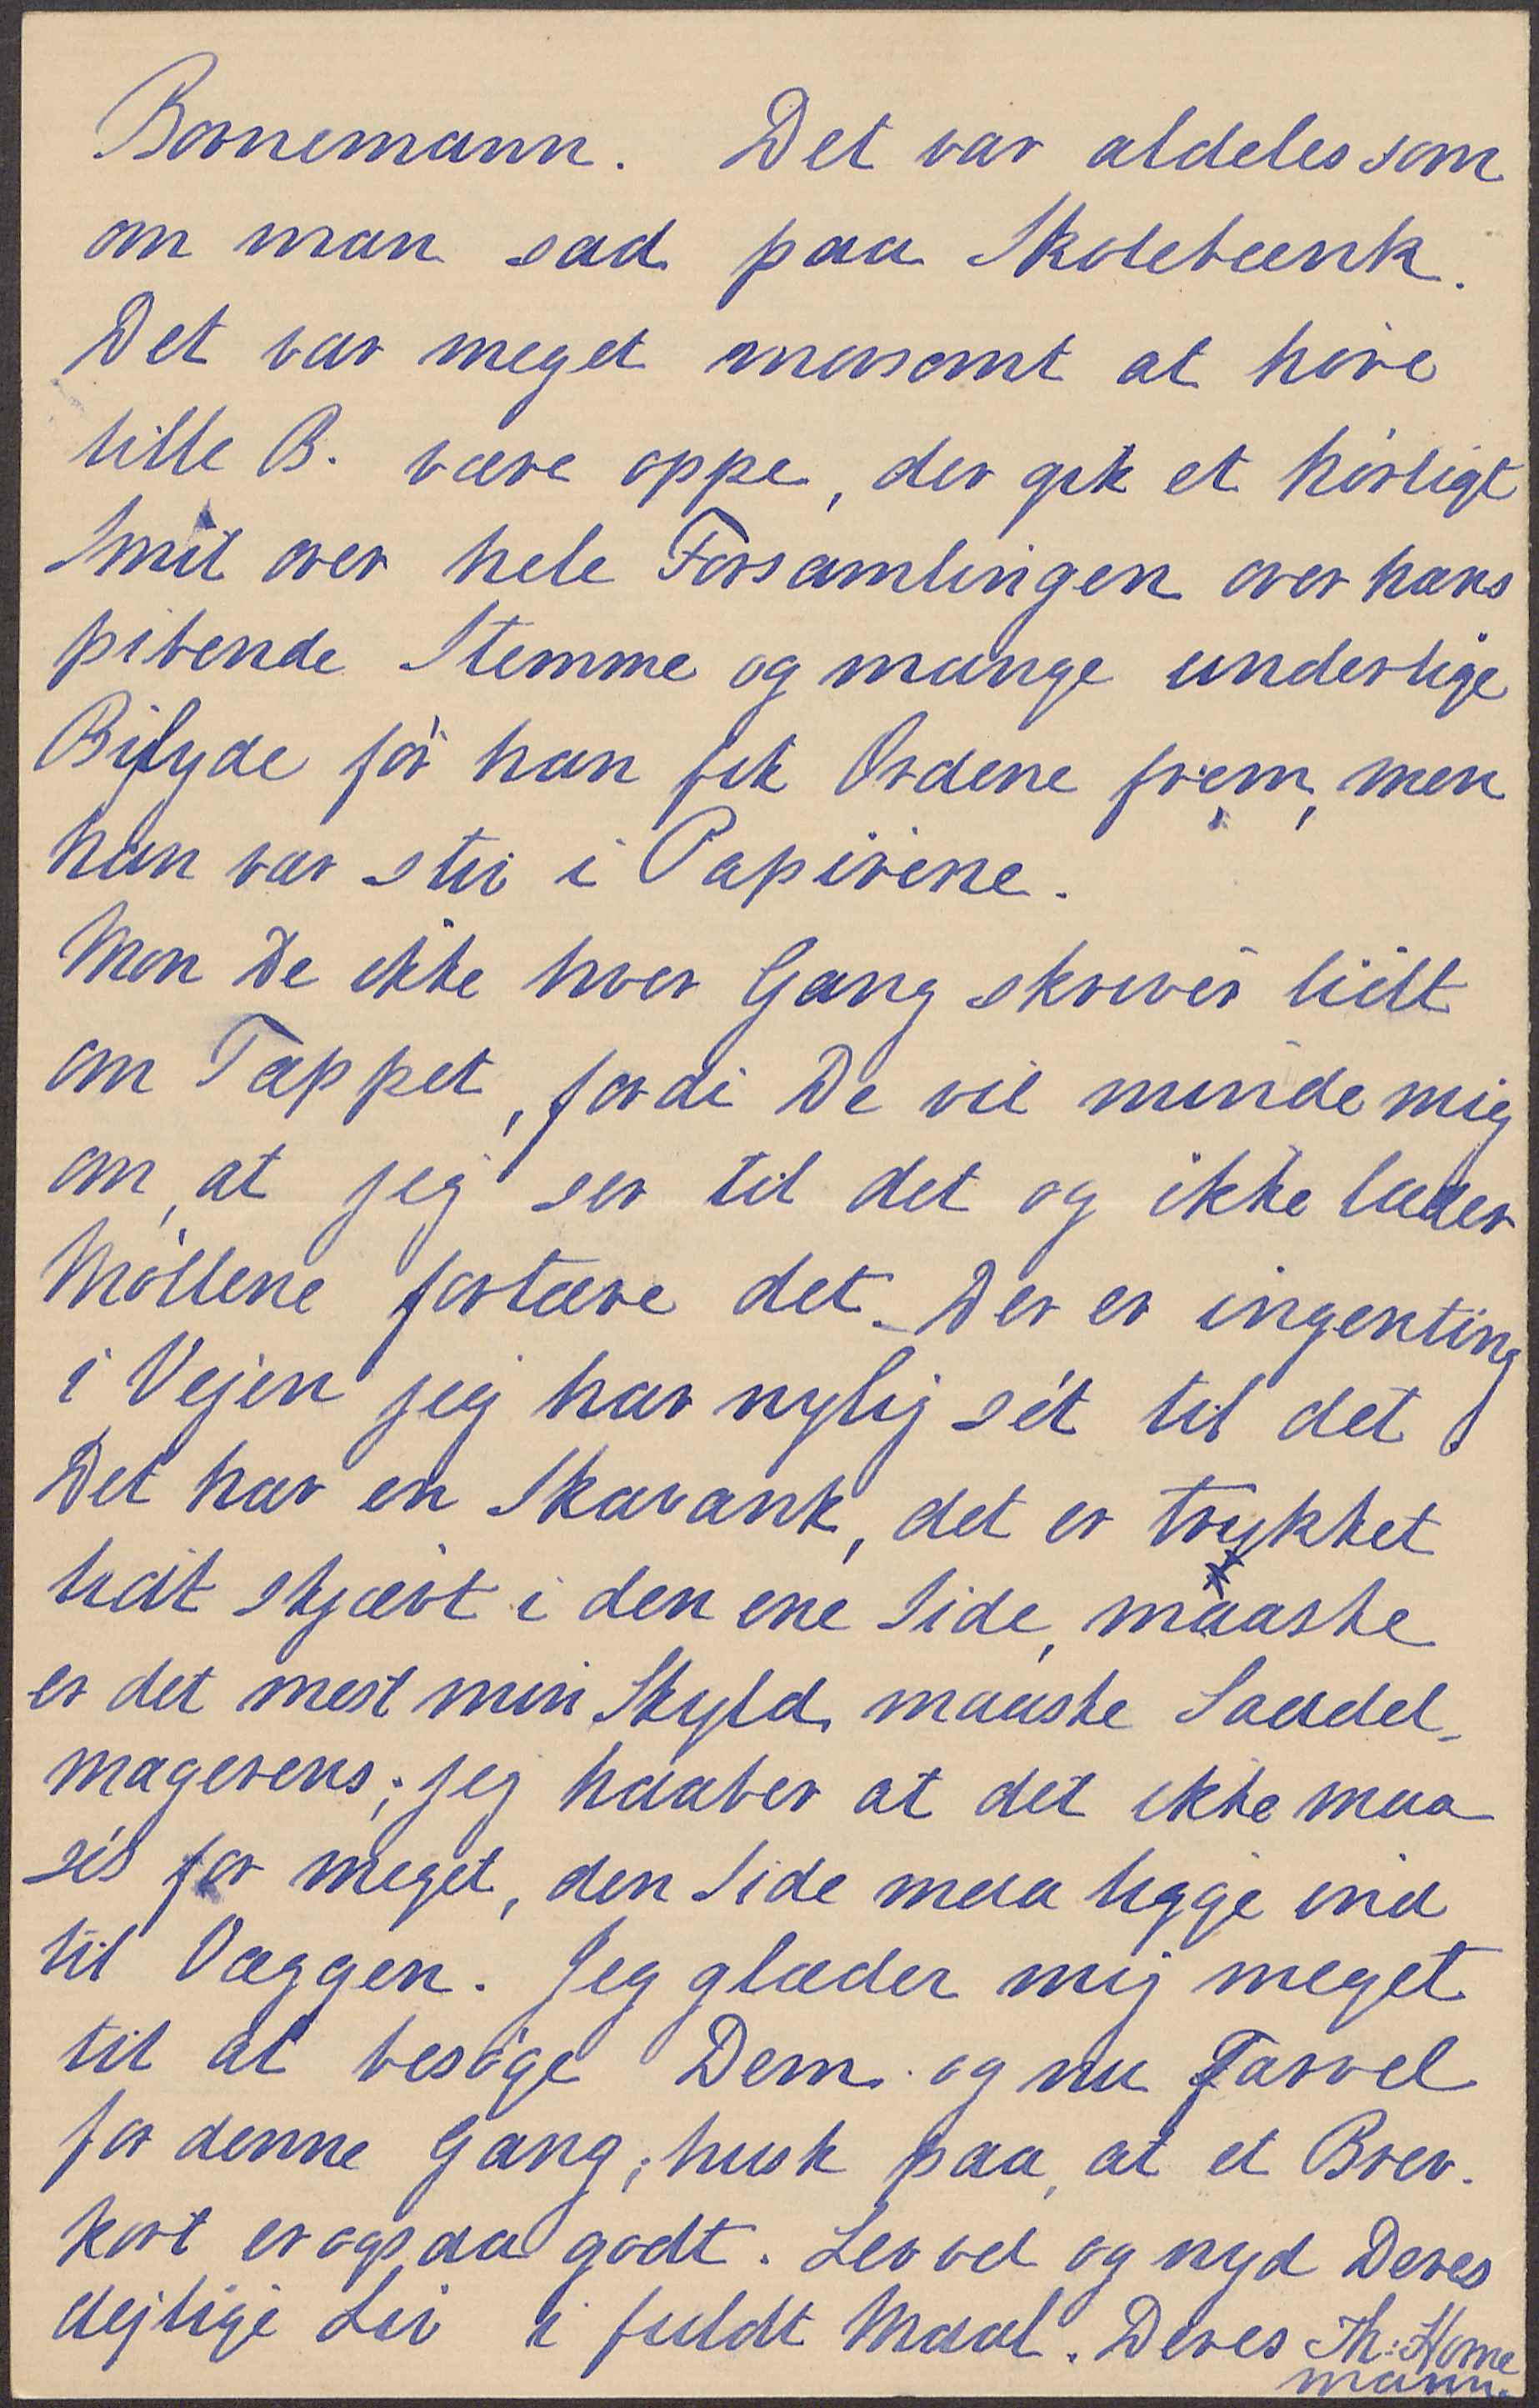 Bornemann. Det var aldeles som
om man sad paa Skolebænk.
Det var meget morsomt at höre
lille B. være oppe, der gik et hörligt
Smil over hele Forsamlingen over hans
pibende Stemme og mange underlige
Bilyde för han fik Ordene frem, men
han var stiv i Papirene.
Mon De ikke hver Gang skriver lidt
om Tæppet, fordi De vil minde mig
om, at jeg ser til det og ikke lader
Möllene fortære det. Der er ingenting
i Vejen jeg har nylig sét til det!
Det har en Skavank, det er trykket
lidt skjævt i den ene Side, maaske
er det mest min Skyld, maaske Saddel-
magerens; jeg haaber at det ikke maa
sés for meget, den Side maa ligge ind
til Væggen. Jeg glæder mig meget
til at besöge Dem og nu Farvel
for denne Gang; husk paa, at et Brev-
kort er ogsaa godt. Lev vel og nyd Deres
dejlige Liv i fuldt Maal. Deres Th: Horne
mann.